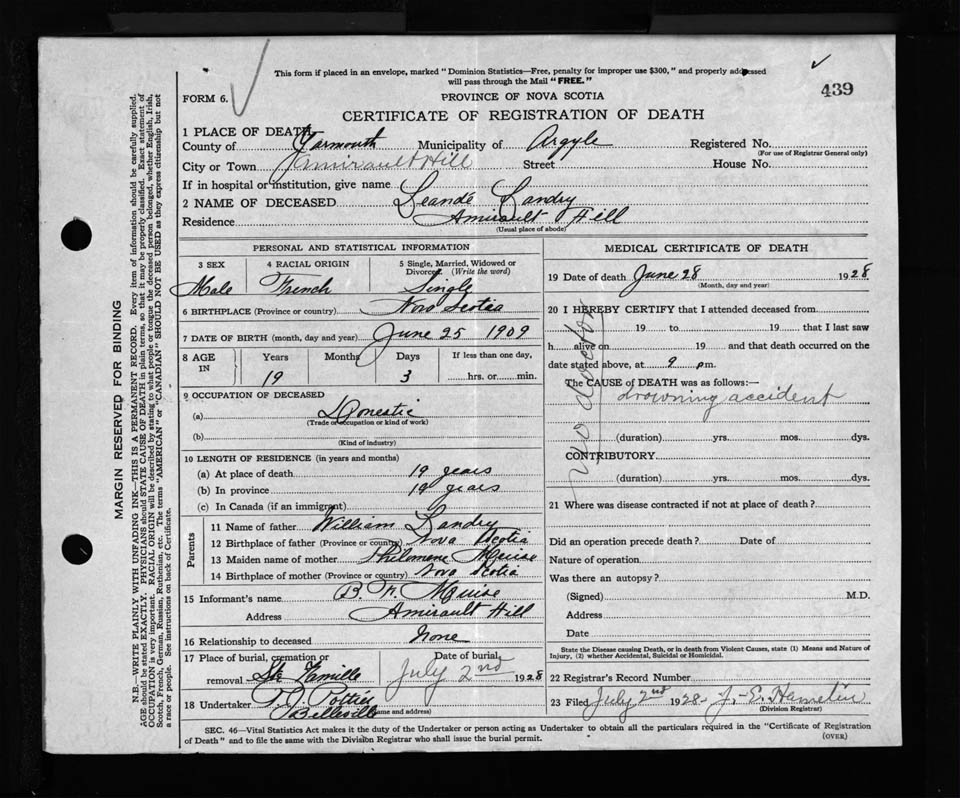 This form if placed in an envelope, marked "Dominion Statistics—Free, penalty for improper use $300," and properly addressed
will pass through the Mail "FREE."
439
FORM 6.
PROVINCE OF NOVA SCOTIA
CERTIFICATE OF REGISTRATION OF DEATH
1 PLACE OF DEATH
County of Yarmouth Municipality of Argyle Registered No.
(For use of Registrar General only)
City or Town Amirault Hill Street House No.
If in hospital or institution, give name
2 NAME OF DECEASED Leande Landry
Residence Amirault Hill
(Usual place of abode)
PERSONAL AND STATISTICAL INFORMATION
3 SEX 4 RACIAL ORIGIN 5 Single, Married, Widowed or
Divorced. (Write the word)
Male French Single
6 BIRTHPLACE (Province or country) Nova Scotia
7 DATE OF BIRTH (month, day and year) June 25 1909
8 AGE IN Years Months Days If less than one day,
19 3 hrs. or min.
9 OCCUPATION OF DECEASED
(a) Domestic
(Trade or occupation or kind of work)
(b)
(Kind of industry)
10 LENGTH OF RESIDENCE (in years and months)
(a) At place of death 19 years
(b) In province 19 years
(c) In Canada (if an immigrant)
Parents
11 Name of father William Landry
12 Birthplace of father (Province or country) Nova Scotia
13 Maiden name of mother Philomene Muise
14 Birthplace of mother (Province or country) Nova Scotia
15 Informant's name B. F. Muise
Address Amirault Hill
16 Relationship to deceased None
17 Place of burial, cremation or Date of burial
removal Ste Famille July 2nd 1928
18 Undertaker Pottie
Belleville (Name and address)
MEDICAL CERTIFICATE OF DEATH
19 Date of death June 28 1928
(Month, day and year)
20 I HEREBY CERTIFY that I attended deceased from
19 to 19 that I last saw
h alive on 19 and that death occurred on the
date stated above, at 9 pm.
The CAUSE of DEATH was as follows:—
drowning accident
no doctor
(duration) yrs. mos. dys.
CONTRIBUTORY
(duration) yrs. mos. dys.
21 Where was disease contracted if not at place of death?
Did an operation precede death? Date of
Nature of operation
Was there an autopsy?
(Signed) M.D.
Address
Date
State the Disease causing Death, or in death from Violent Causes, state (1) Means and Nature of
Injury, (2) whether Accidental, Suicidal or Homicidal.
22 Registrar's Record Number
23 Filed July 2nd 1928 J. E. Hamelin
(Division Registrar)
SEC. 46—Vital Statistics Act makes it the duty of the Undertaker or person acting as Undertaker to obtain all the particulars required in the "Certificate of Registration
of Death" and to file the same with the Division Registrar who shall issue the burial permit. (OVER)
MARGIN RESERVED FOR BINDING
N.B.—WRITE PLAINLY WITH UNFADING INK—THIS IS A PERMANENT RECORD. Every item of information should be carefully supplied.
AGE should be stated EXACTLY. PHYSICIANS should STATE CAUSE OF DEATH in plain terms, so that it may be properly classified. Exact statement of
OCCUPATION is very important. RACIAL ORIGIN will be described by stating to what people or tongue the deceased person belonged, whether English, Irish,
Scotch, French, German, Russian, Ruthenian, etc. The terms "AMERICAN" or "CANADIAN" SHOULD NOT BE USED as they express citizenship but not
a race or people. See instructions on back of Certificate.